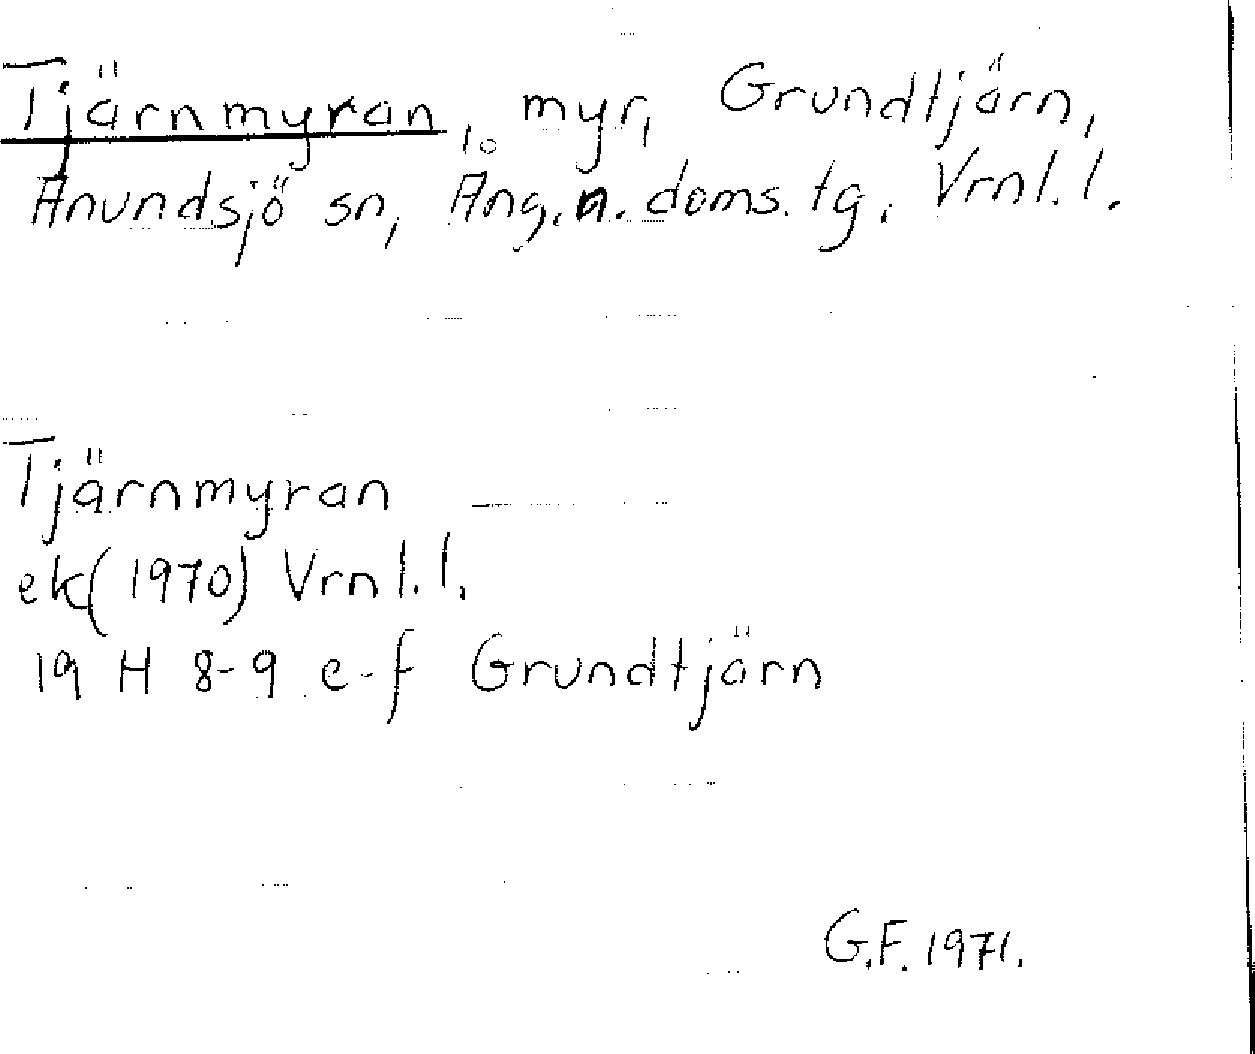 Tjärnmyran, myr, Grundtjärn,
Anundsjö sn, Ång. n. doms. tg. Vrnl. l.
Tjärnmyran
ek (1970) Vrnl. l.
19 H 8-9 e-f Grundtjärn
G.F. 1971.